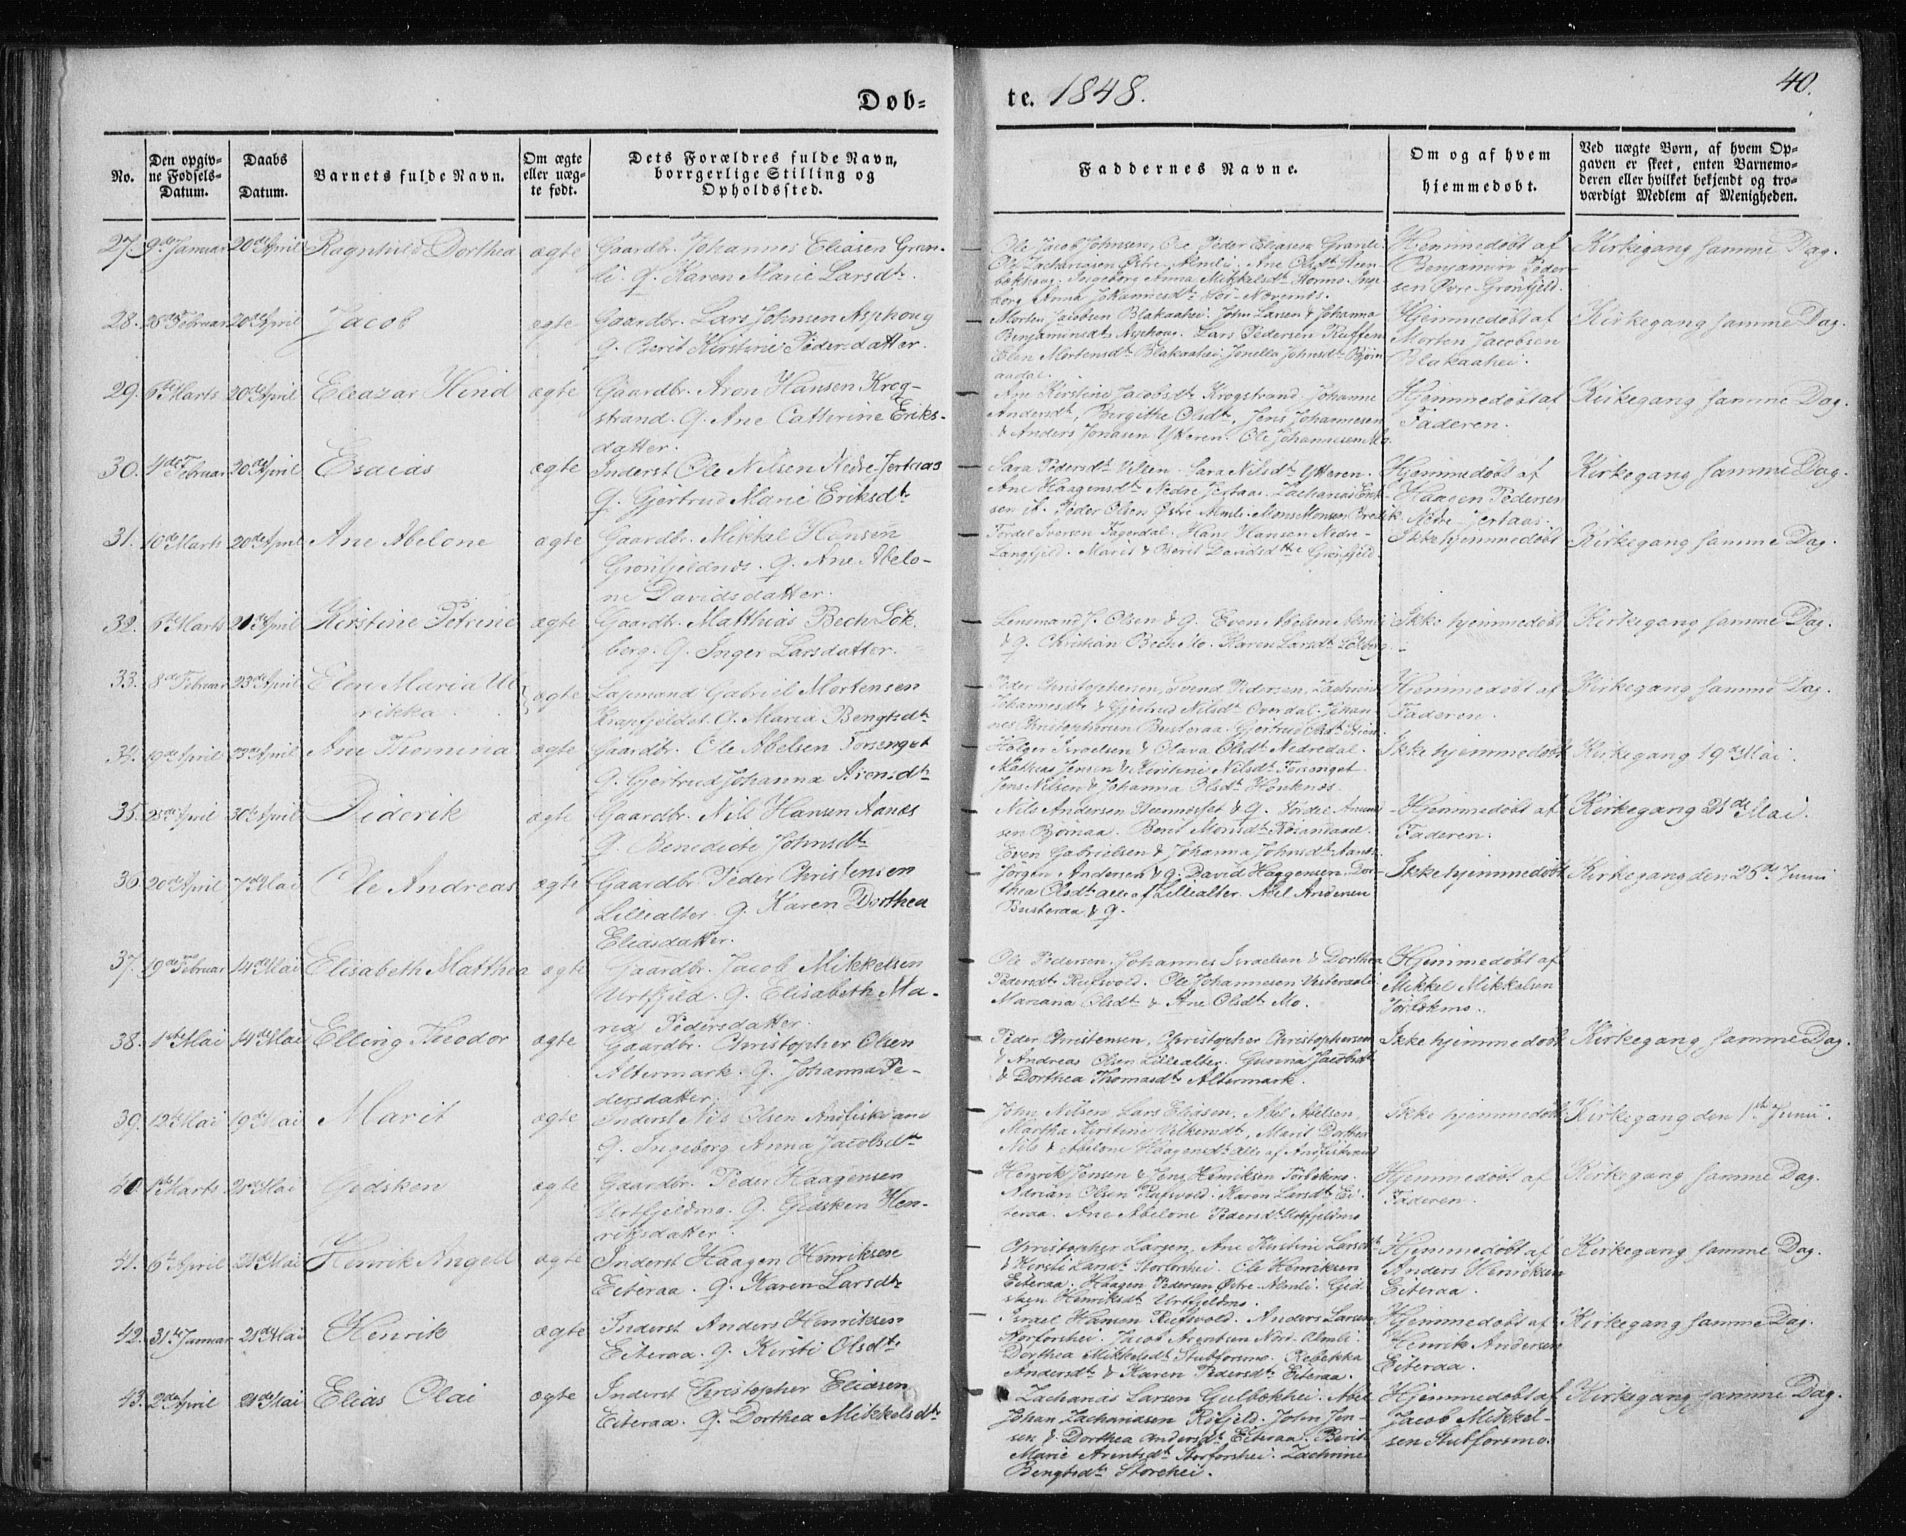 Døb-
te. 1848.
40.
No.
Den opgiv-
ne Fødsels-
Datum.
Daabs
Datum.
Barnets fulde Navn.
Om ægte
eller uæg-
te født.
Dets Forældres fulde Navn,
borrgerlige Stilling og
Opholdssted.
Faddernes Navne.
Om og af hvem
hjemmedøbt.
Ved uægte Børn, af hvem Op-
gaven er skeet, enten Barnemo-
deren eller hvilket bekjendt og tro-
værdigt Medlem af Menigheden.
27. 9de Januar 20de April Ragnhild Dorthea ægte
Gaardbr. Johannes Eliasen Gran-
li q. Karen Marie Larsdt.
Ole Jacob Johnsen, Ole Peder Eliasen Granli.
Ole Zachariasen Østre-Almli. Ane Olsdt
Ingeborg Anna Mikkelsdt Stormo. Inge-
borg Anna Johannesdt
Hjemmedøbt af
Benjamin Peder-
sen Øvre-Grønfjeld.
Kirkegang samme Dag.
28. Februar 20de April Jacob ægte
Gaardbr. Lars Johnsen Asphoug
q. Berit Kirstine Pedersdatter.
Morten Jacobsen Blakaahei. John Larsen & Johanna
Benjaminsdt Asphoug. Lars Pedersen
Elen Mortensdt Blakaahei. Jonetta Johnsdt Bjørn-
aadal.
Hjemmedøbt af
Morten Jacobsen
Blakaahei.
Kirkegang samme Dag.
29. 6te Marts 20de April Eleazar Hind ægte
Gaardbr. Aron Hansen Krog-
strand. q. Ane Cathrine Eriks-
datter.
Ane Kirstine Jacobsdt Krogstrand. Johanna
Andersdt, Birgithe Olsdt, Jens Johannesen
& Anders Jonasen Ytteren. Ole Johannesen Mo.
Hjemmedøbt af
Faderen.
Kirkegang samme Dag.
30. 4de Februar 20de April Esaias ægte
Inderst Ole Nilsen Nedre-Jertaas
q. Gjertrud Marie Eriksdt.
Sara Pedersdt Sara Nilsdt Ytteren.
Ane Haagensdt Nedre Jertaas. Zacharias Erik-
sen Peder Olsen Østre Almli. Mons Monsen
Hjemmedøbt af
Haagen Pedersen
Nedre-Jertaas.
Kirkegang samme Dag.
31. 10de Marts 20de April Ane Abelone ægte
Gaardbr. Mikkel Hansen
Grønfjeldnæs. q. Ane Abelo-
ne Davidsdatter.
Tordel Iversen Fagerdal. Hans Hansen Nedre-
Langfjeld. Marit & Berit Davidsdttre Grønfjeld.
Ikke hjemmedøbt
Kirkegang samme Dag.
32. 6te Marts 21de April Kirstine Petrine ægte
Gaardb. Matthias Bech Løk-
berg. q. Inger Larsdatter.
Lensmand J. Olsen & q. Even Nilsen Almli
& q. Christian Bech Mo. Karen Larsdt Løkberg.
Ikke hjemmedøbt
Kirkegang samme Dag.
33. 8de Februar 23de April Elen Maria Ul-
rikka. ægte
Lapmand Gabriel Mortensen
Krapfjeldet. q. Maria Bengtsdt.
Peder Christophersen, Svend Pedersen, Zachrine
Johannesdt & Gjertrud Nilsdt Overdal. Johan-
nes Christophersen Busteraa. Gjertrud Olsdt
Hjemmedøbt af
Faderen.
Kirkegang samme Dag.
34. April 23de April Ane Thomina ægte
Gaardbr. Ole Abelsen Forsenget
q. Gjertrud Johanna Arensdt.
Holger Israelsen & Olava Olsdt Nedredal.
Mathias Jensen & Kirstine Nilsdt Forsenget.
Jens Nilsen & Johanna Olsdt
Ikke hjemmedøbt
Kirkegang 19de Mai.
35. April 30te April Diderik ægte
Gaardbr. Nils Hansen Aanæs
q. Benedicte Johnsdt
Nils Andersen & q. Tordel
sen Bjørnaa. Berit Monsdt
Even Gabrielsen & Johanna Johnsdt Aanæs.
Hjemmedøbt af
Faderen.
Kirkegang 21de Mai.
36 20de April 7de Mai Ole Andreas ægte
Gaardbr. Peder Christensen
Lillealter. q. Karen Dorthea
Eliasdatter.
Jørgen Andersen & q. David Haggensen, Dor-
thea Olsdt alle af Lillealter. Abel Andersen
Busteraa & q.
Ikke hjemmedøbt
Kirkegang den 25de Junii
37. 19de Februar 14de Mai Elisabeth Matthea ægte
Gaardbr. Jacob Mikkelsen
Urtfjeld. q. Elisabeth Ma-
ria Pedersdatter.
Ole Pedersen, Johannes Israelsen & Dorthea
Pedersdt Rufsvold. Ole Johannesen
Mariana Olsdt & Ane Olsdt Mo.
Hjemmedøbt af
Mikkel Mikkelsen
38. 1ste Mai 14de Mai Elling Theodor ægte
Gaardbr. Christopher Olsen
Altermark. q. Johanna Pe-
dersdatter.
Peder Christensen, Christopher Christophersen
& Andreas Olsen Lillealter. Gunna Jacobsdt
& Dorthea Thomasdt Altermark.
Ikke hjemmedøbt
Kirkegang samme Dag.
39. 12te Mai 19de Mai Marit ægte
Inderst Nils Olsen Anfiskvand
q. Ingeborg Anna Jacobsdt.
John Nilsen, Lars Eliasen, Abel Abelsen,
Martha Kirstine Vilkensdt, Marit Dorthea
Nils & Abelone Haagensdt alle af Anfiskvand
Ikke hjemmedøbt
Kirkegang den 1ste Junii.
40. 1ste Marts 21de Mai Gidsken ægte
Gaardbr. Peder Haagensen
Urtfjeldmo. q. Gidsken Hen-
riksdatter.
Henrik Jensen & Jens Henriksen
Adrian Olsen Rufsvold. Karen Larsdt Ei-
teraa. Ane Abelone Pedersdt Urtfjeldmo
Hjemmedøbt af
Faderen.
Kirkegang samme Dag.
41. 6te April 21de Mai Henrik Angell ægte
Inderst Haagen Henriksen
Eiteraa. q. Karen Larsdt.
Christopher Larsen, Ane Kirstine Larsdt
& Kirsti Larsdt Storforshei. Ole Henriksen
Eiteraa. Haagen Pedersen Østre-Almli. Gid-
sken Henriksdt Urtfjeldmo.
Hjemmedøbt af
Anders Henriksen
Eiteraa.
Kirkegang samme Dag.
42. 31te Januar 21de Mai Henrik ægte
Inderst Anders Henriksen
Eiteraa. q. Kirsti Olsdt.
Israel Hansen Rufsvold. Anders Larsen
Storforshei. Jacob Arentsen Nord-Almli.
Dorthea Mikkelsdt Stubforsmo. Rebekka
Andersdt & Karen Pedersdt Eiteraa.
Hjemmedøbt af
Henrik Andersen
Eiteraa.
Kirkegang samme Dag.
43. 2de April 21de Mai Elias Olai ægte
Inderst Christopher Eliasen
Eiteraa. q. Dorthea Mikkelsdt.
Zacharias Larsen Gulbakhei. Abel
Johan Zachariasen Rufjeld. John Jen-
sen & Dorthea Andersdt Eiteraa. Berit
Marie Arentsdt Storforshei. Zachrine
Bengtsdt Storhei.
Hjemmedøbt af
Jacob Mikkel-
sen Stubforsmo.
Kirkegang samme Dag.